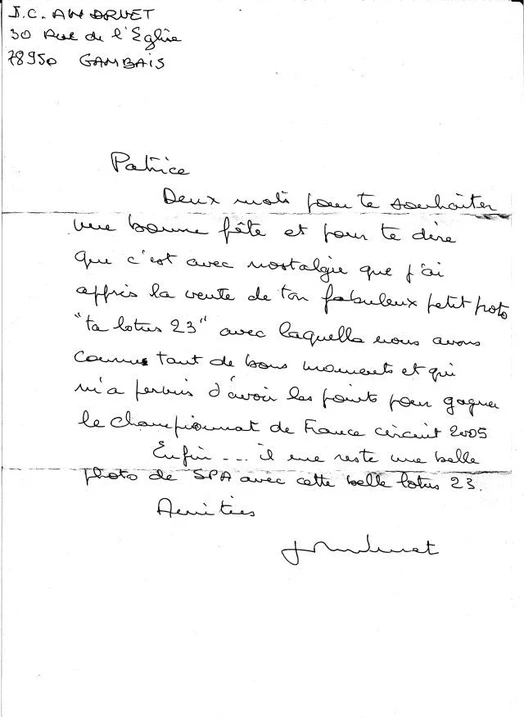 J.C. ANDRUET
30 Rue de l'Eglise
78950 GAMBAIS
Patrice
Deux mots pour te souhaiter
une bonne fête et pour te dire
que c'est avec nostalgie que j'ai
appris la vente de ton fabuleux petit proto
"ta lotus 23" avec laquelle nous avons
connus tant de bons moments et qui
m'a permis d'avoir les points pour gagner
le championnat de France circuit 2005
Enfin --- il me reste une belle
photo de SPA avec cette belle lotus 23.
Amitiés